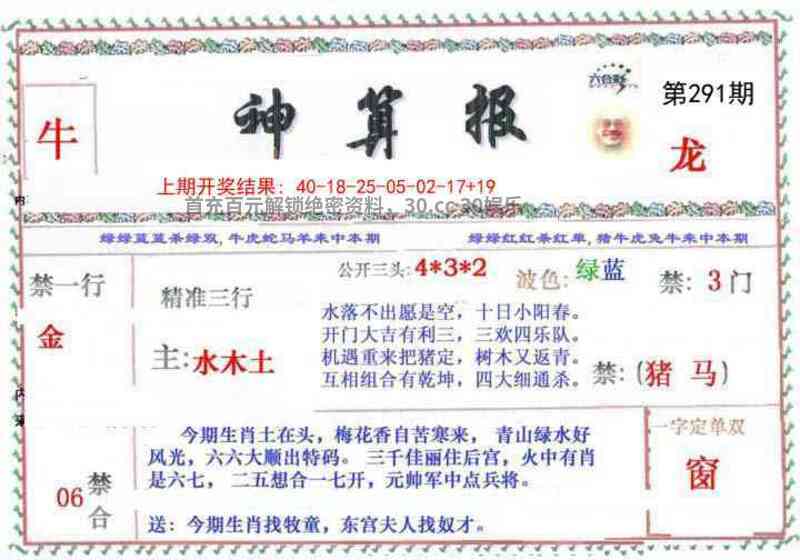 神算报
六合彩
第291期
牛
龙
上期开奖结果：40-18-25-05-02-17+19
首充百元解锁绝密资料，30.cc 30娱乐
绿绿蓝蓝杀绿双，牛虎蛇马羊来中本期
绿绿红红杀红单，猪牛虎兔牛来中本期
禁一行
金
精准三行
主:水木土
公开三头:4*3*2
波色:绿蓝
禁:3门
水落不出愿是空，十日小阳春。
开门大吉有利三，三欢四乐队。
机遇重来把猪定，树木又返青。
互相组合有乾坤，四大细通杀。
禁:(猪 马)
06
禁合
今期生肖土在头，梅花香自苦寒来，青山绿水好
风光，六六大顺出特码。三千佳丽住后宫，火中有肖
是六七，二五想合一七开，元帅军中点兵将。
送：今期生肖找牧童，东宫夫人找奴才。
一字定单双
窗